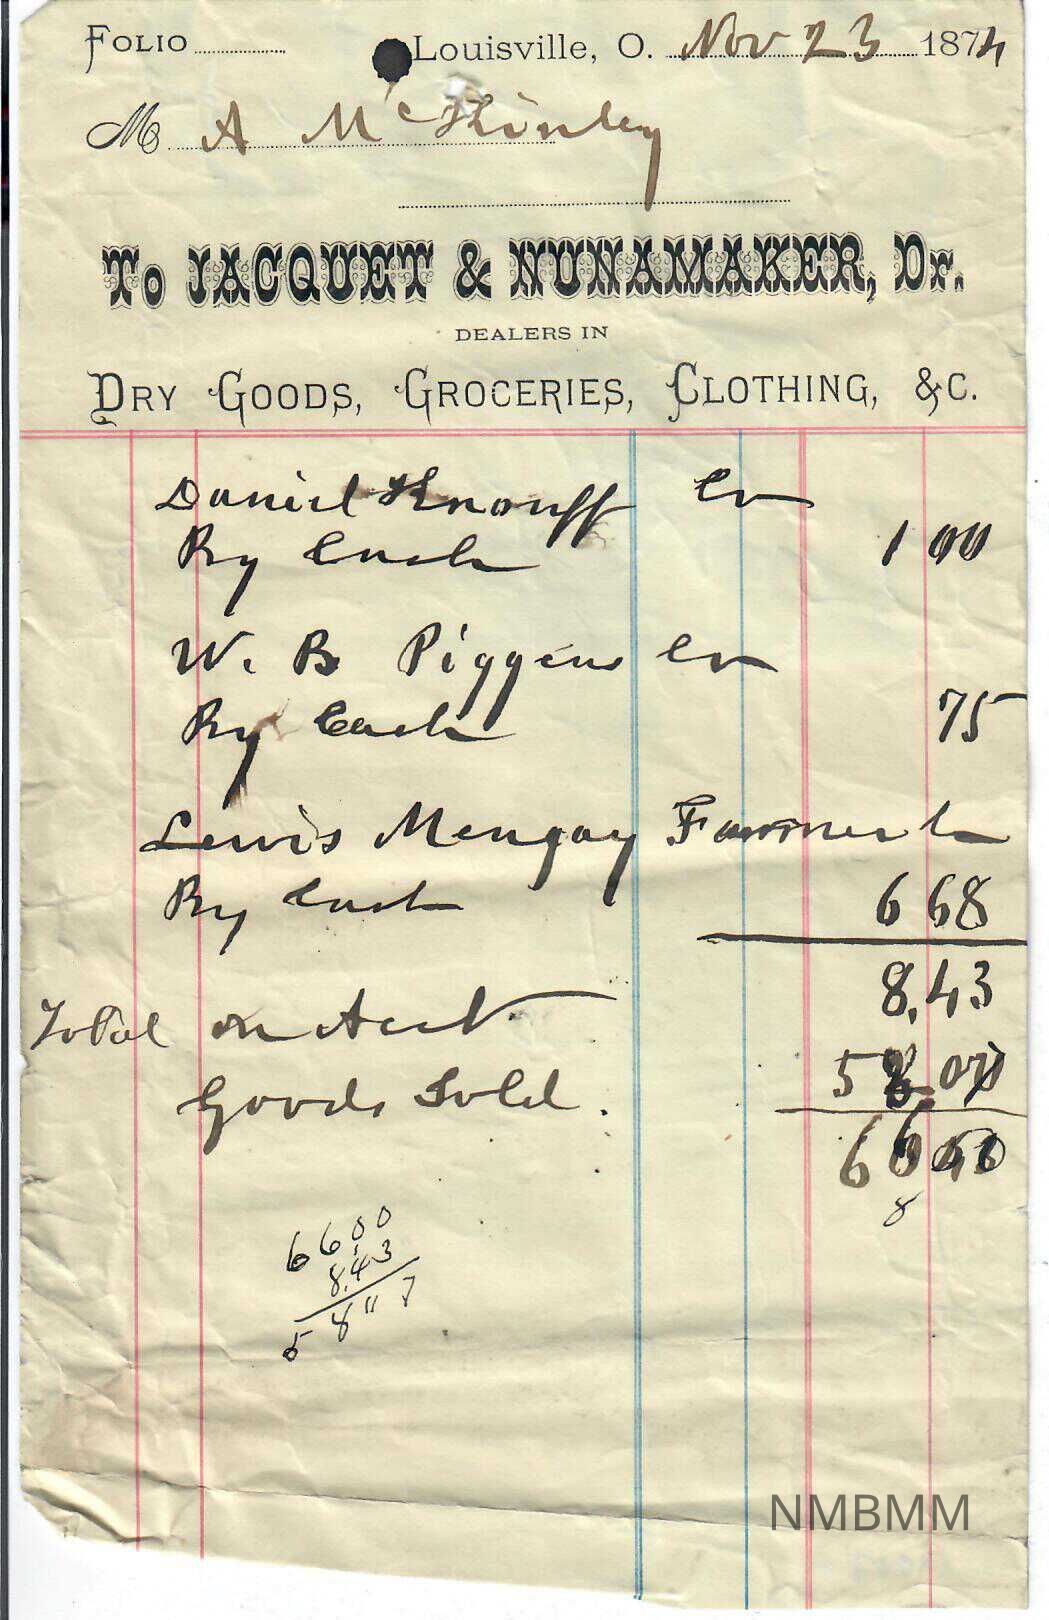 FOLIO
Louisville, O. Nov 23 1874
M A McKinley
To JACQUET & NUNAMAKER, Dr.
DEALERS IN
DRY GOODS, GROCERIES, CLOTHING, &C.
Daniel Knouff Cr
By Cash 1 00
W. B Piggens Cr
By Cash 75
Lewis Mengay Farmer Cr
By Cash 6 68
8,43
Total on Acct
Goods Sold.
6600
8,43
58 " 7
NMBMM